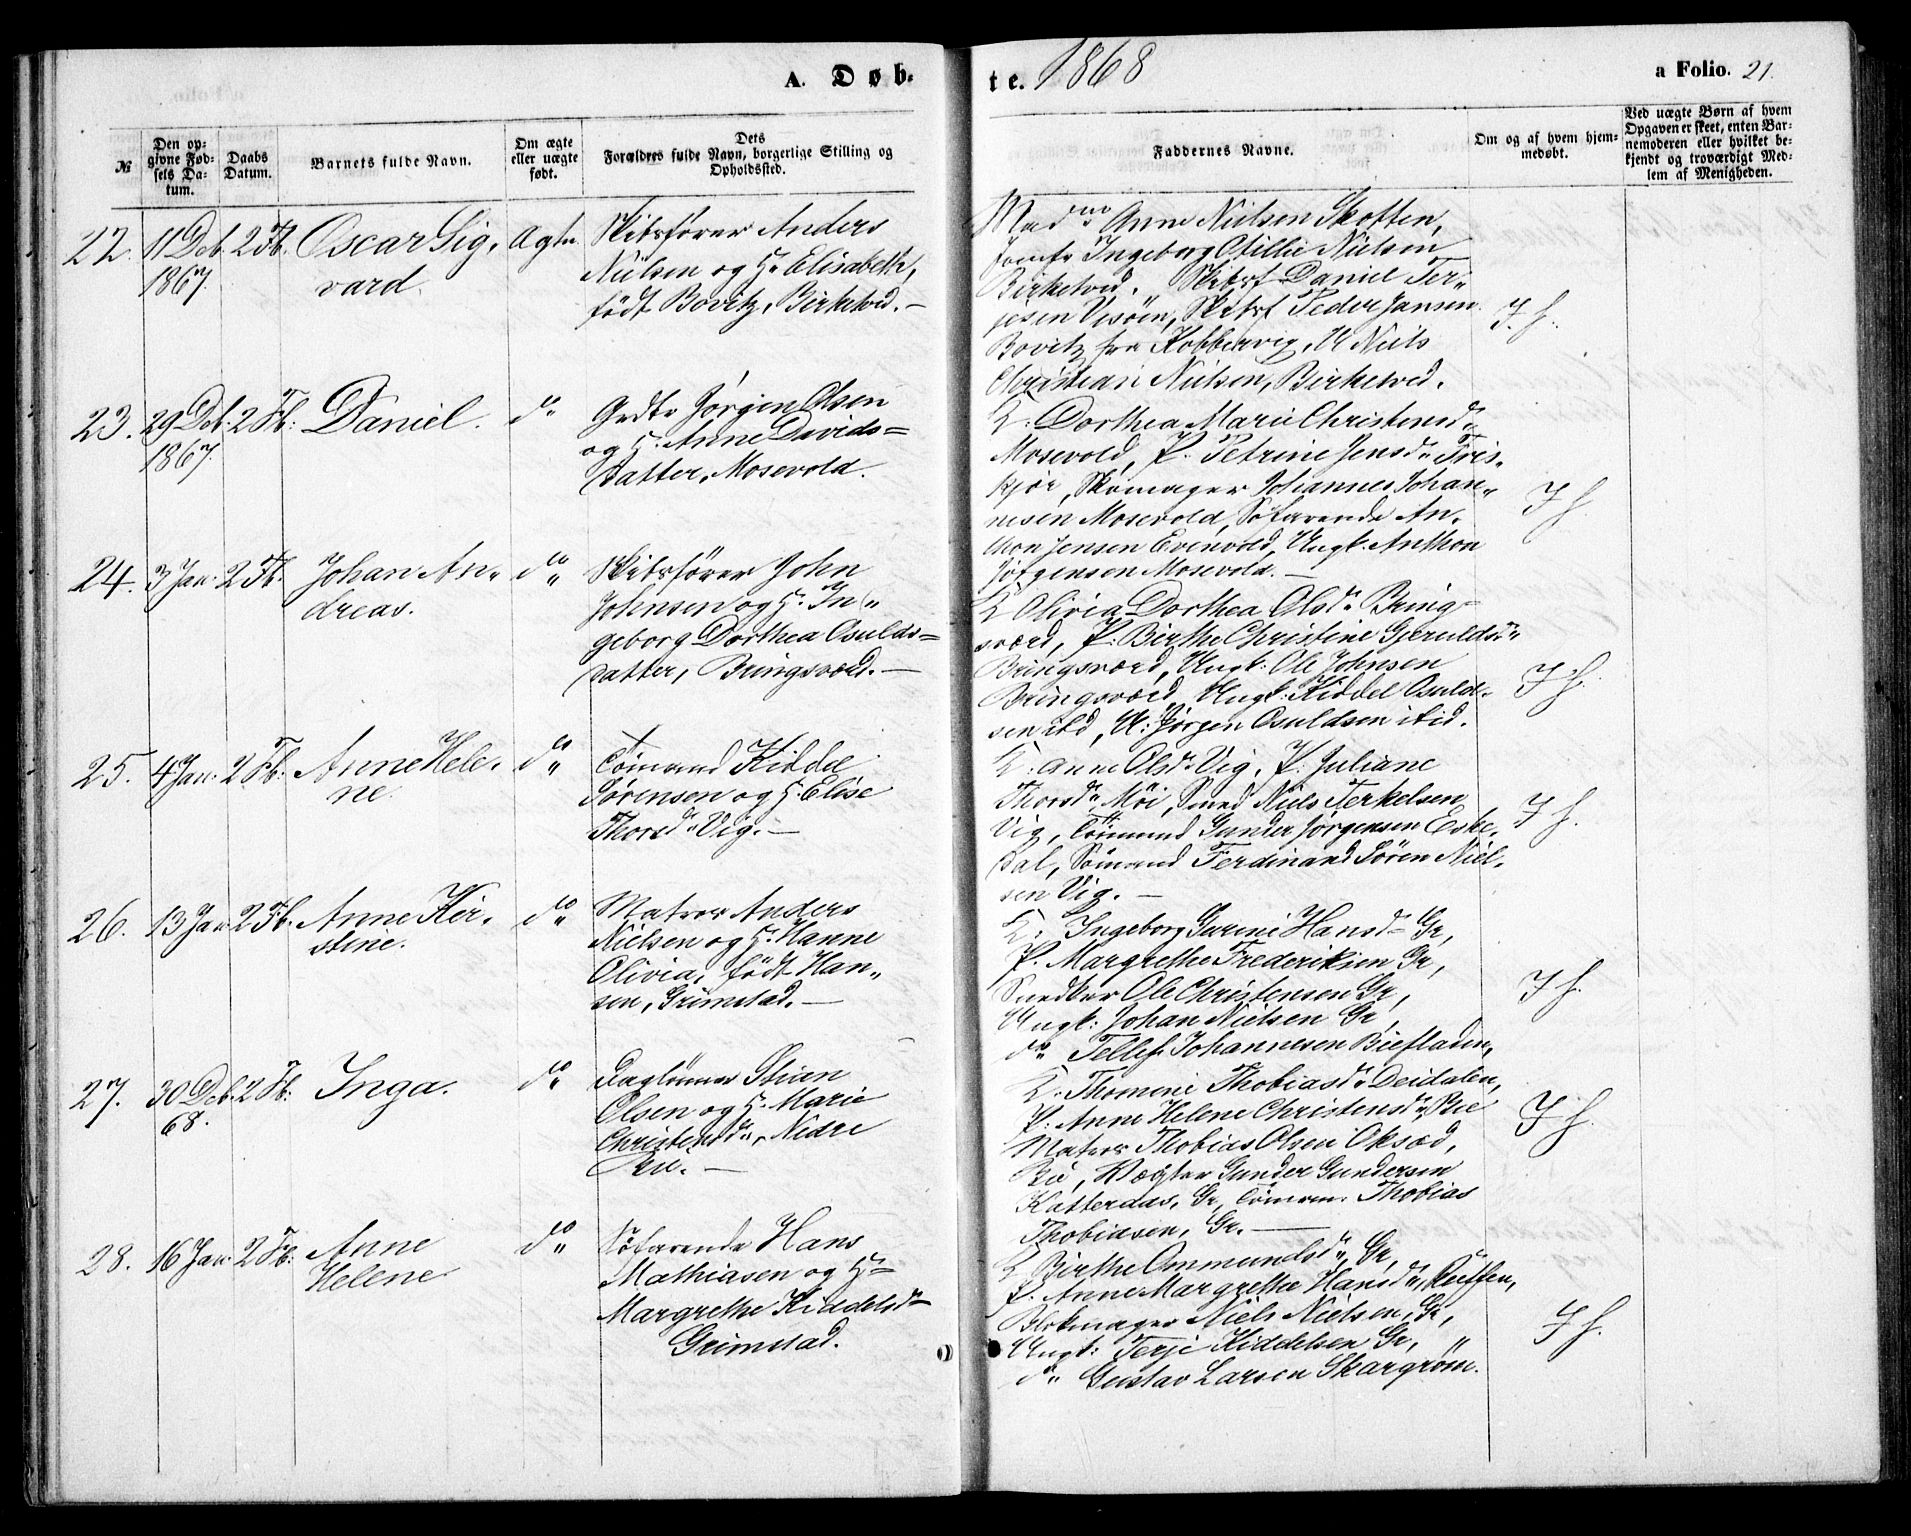 A. Døb-
te. 1868
a Folio. 21.
№
Den op-
givne Fød-
sels Da-
tum.
Daabs
Datum.
Barnets fulde Navn.
Om ægte
eller uægte
født.
Dets
Forældres fulde Navn, borgerlige Stilling og
Opholdssted.
Faddernes Navne.
Om og af hvem hjem-
medøbt.
Ved uægte Børn af hvem
Opgaven er skeet, enten Bar-
nemoderen eller hvilket be-
kjendt og troværdigt Med-
lem af Menigheden.
22. 11 Deb. 2 Fb. Oscar Sig-
1867 vard.
Ægte.
Skibsfører Anders
Nielsen og H. Elisabeth,
født Bovitz, Birketved. —
Madm Anne Nielsen Skotten,
Jomfr Ingeborg Otillie Nielsen
Birketved. Skibsf Daniel Ter-
jesen Vesøen, Skibsf Peder Jansen
Bovitz fra Kobbervig, U Niels
Christian Nielsen, Birketved.
J. h.
23. 29 Deb. 2 Fb: Daniel.
1867.
do
Gdbr Jørgen Olsen
og H. Anne Davids=
datter, Mosevold.
K. Dorthea Marie Christensd.
Mosevold, P. Petrine Jensd. Fris-
kjær, Skomager Johannes Johan-
nesen Mosevold, Søfarende An-
thon Jensen Evenvold, Ungk. Anthon
Jørgensen Mosevold. —
J h.
24. 3 Jan. 2 Fb. Johan An-
dreas.
do
Skibsfører John
Johnsen og H. In-
geborg Dorthea Osulds=
datter, Bringsværd. —
K Olivia Dorthea Olsd. Bring-
sværd, P. Birthe Christine Gjeruldsd.
Bringsværd, Ungk: Ole Johnsen
Bringsværd, Ungk. Kiddel Osuld-
sen ibd, U: Jørgen Osuldsen ibid.
J h.
25. 4 Jan. 2 Fb: Anne Hele-
ne.
do
Tømmand Kiddel
Sørensen og H. Elise
Thorsd. Vig. —
K. Anne Olsd. Vig, P. Juliane
Thorsd. Møi, Smed Niels Terkelsen
Vig, Tømmand Gunder Jørgensen Eske-
dal, Sømand Ferdinand Søren Niel-
sen Vig. —
J h.
26. 13 Jan 2 Fb. Anne Kir-
stine.
do
Matros Anders
Nielsen og H. Hanne
Olivia, født Han-
sen, Grimstad. —
K. Ingeborg Gurine Hansd. Gr,
P. Margrethe Frederiksen Gr,
Snedker Ole Christensen Gr,
Ungk: Johan Nielsen Gr,
do Tellef Johannesen Biefladen,
J h.
27. 30 Deb. 2 Fb: Inga.
68.
do
Daglønner Stian
Olsen og H. Marie
Christensd., Nedre
Bie. —
K. Thomine Thobiasd. Deidalen,
P. Anne Helene Christensd. Bie
Matros Thobias Olsen Oksed,
Bie, Vægter Gunder Gundersen
Katteraas, Gr, Tømm. Thobias
Thobiasen, Gr. —
J h.
28. 16 Jan. 2 Fb: Anne
Helene
do
Søfarende Hans
Mathiasen og H.
Margrethe Kiddelsd.
Grimstad.
K Birthe Ommundsd. Gr,
P. Anne Margrethe Hansd.
Blokmager Niels Nielsen, Gr,
Ungk: Terje Kiddelsen Gr,
do Gustav Larsen Skargrøm.
J h.